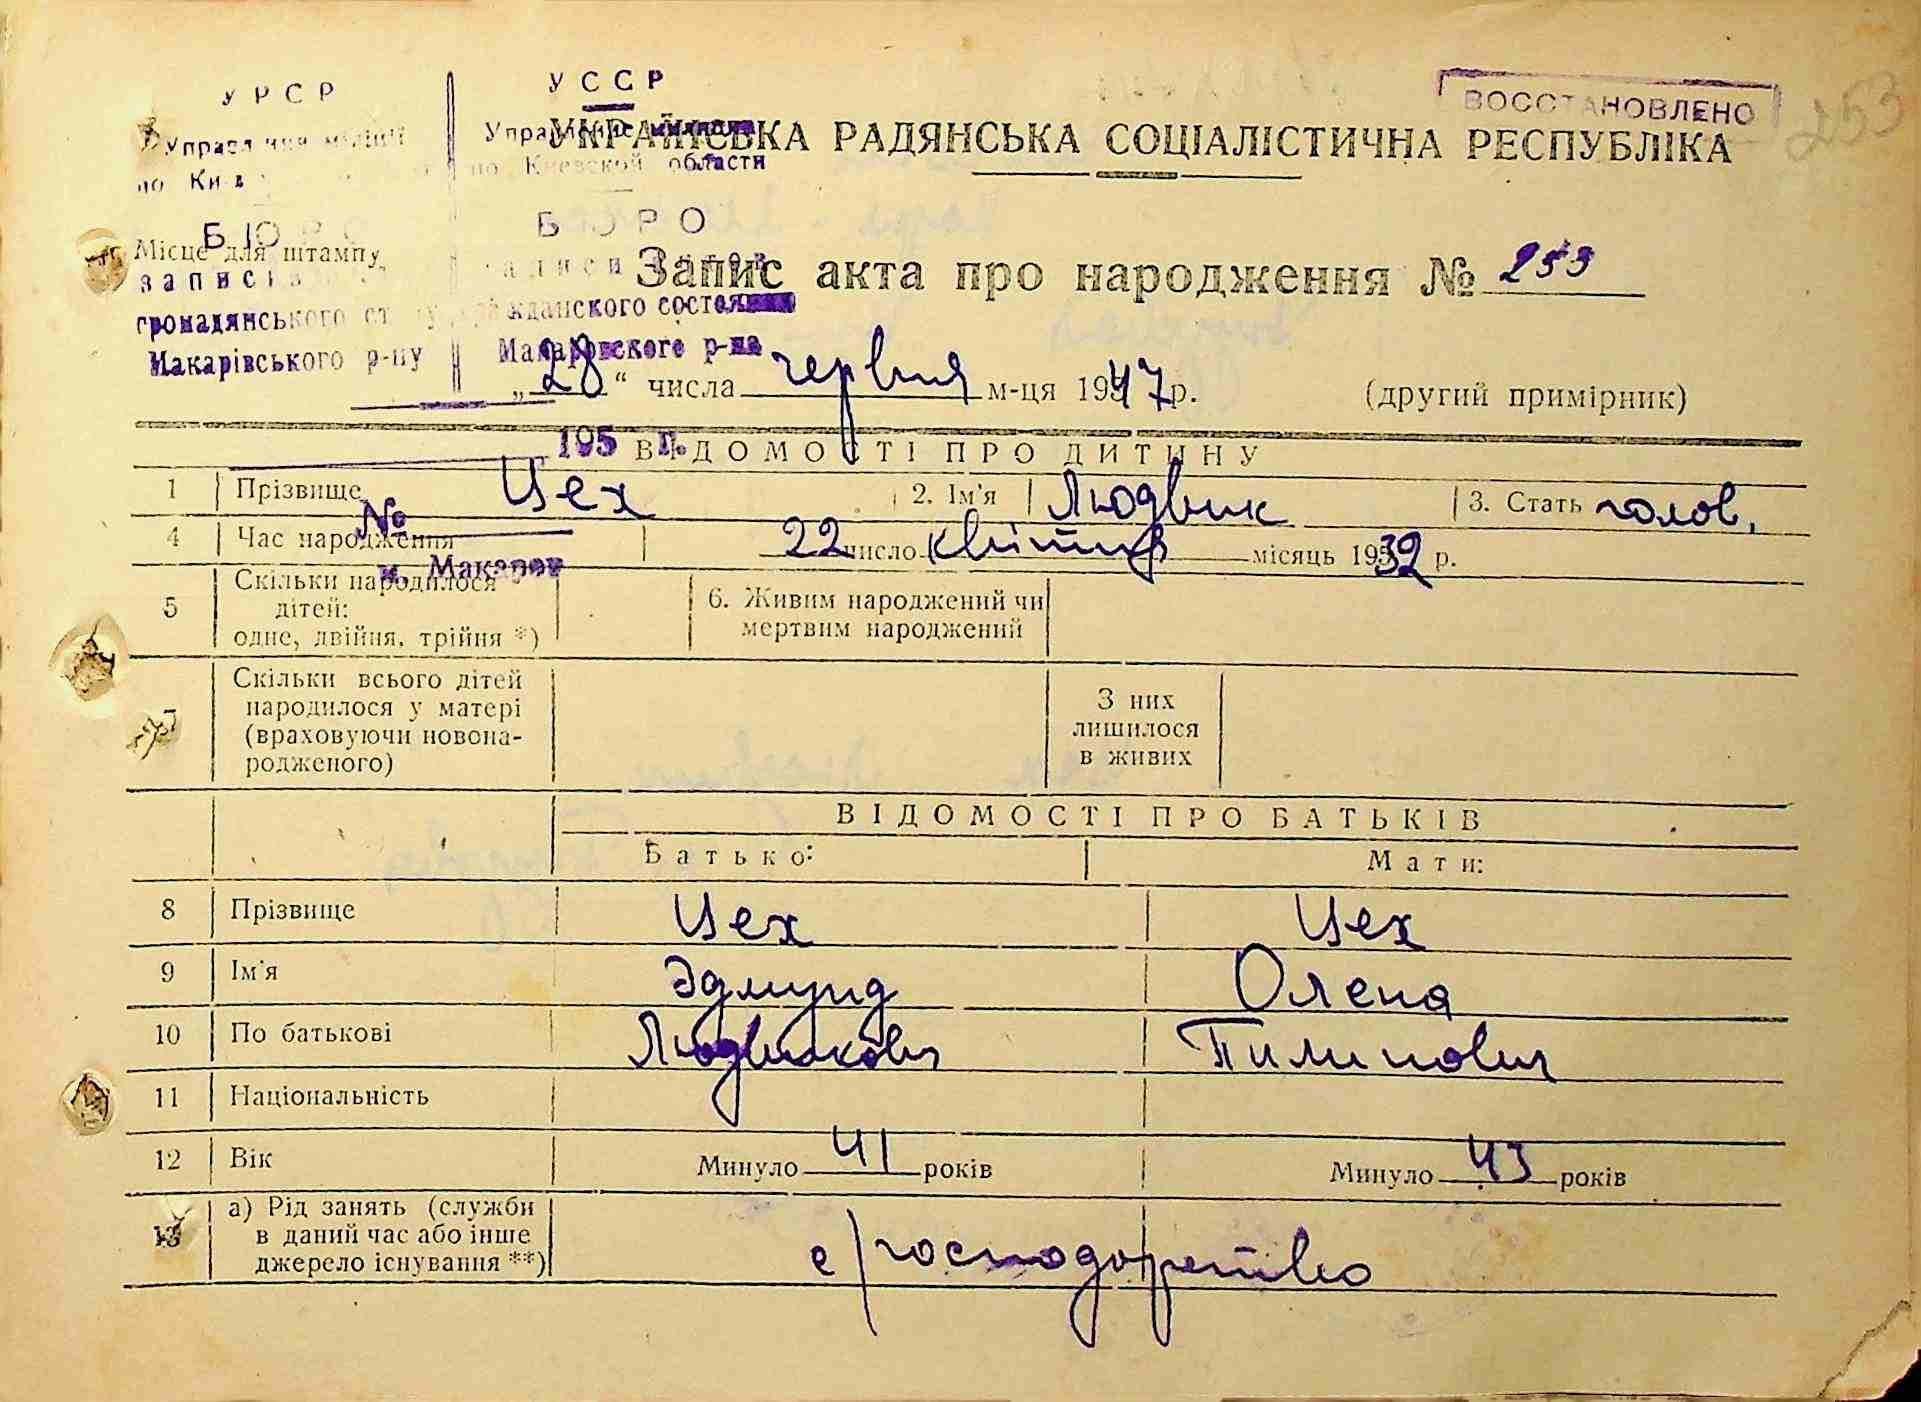 УРСР
Управління міліції
по Ки
БЮ
записів
громадянського ст у
Макарівського р-ну
УССР
Управление милиции
по Киевской области
Б Р О
записи
жданского состояния
Макаровского р-на
195 г.
№
м. Макаров
ВОССТАНОВЛЕНО
253
УКРАЇНСЬКА РАДЯНСЬКА СОЦІАЛІСТИЧНА РЕСПУБЛІКА
Місце для штампу
Запис акта про народження № 253
„28“ числа червня м-ця 1947 р. (другий примірник)
ВІДОМОСТІ ПРО ДИТИНУ
1 Прізвище Цех 2. Ім'я Людвик 3. Стать чолов.
4 Час народження 22 число квітня місяць 1932 р.
5 Скільки народилося дітей: одне, двійня, трійня *) 6. Живим народжений чи мертвим народжений
7 Скільки всього дітей народилося у матері (враховуючи новонародженого) З них лишилося в живих
ВІДОМОСТІ ПРО БАТЬКІВ
Батько: Мати:
8 Прізвище Цех Цех
9 Ім'я Эдмунд Олена
10 По батькові Людвикович Пилипович
11 Національність
12 Вік Минуло 41 років Минуло 43 років
13 а) Рід занять (служби в даний час або інше джерело існування **) с/господарство